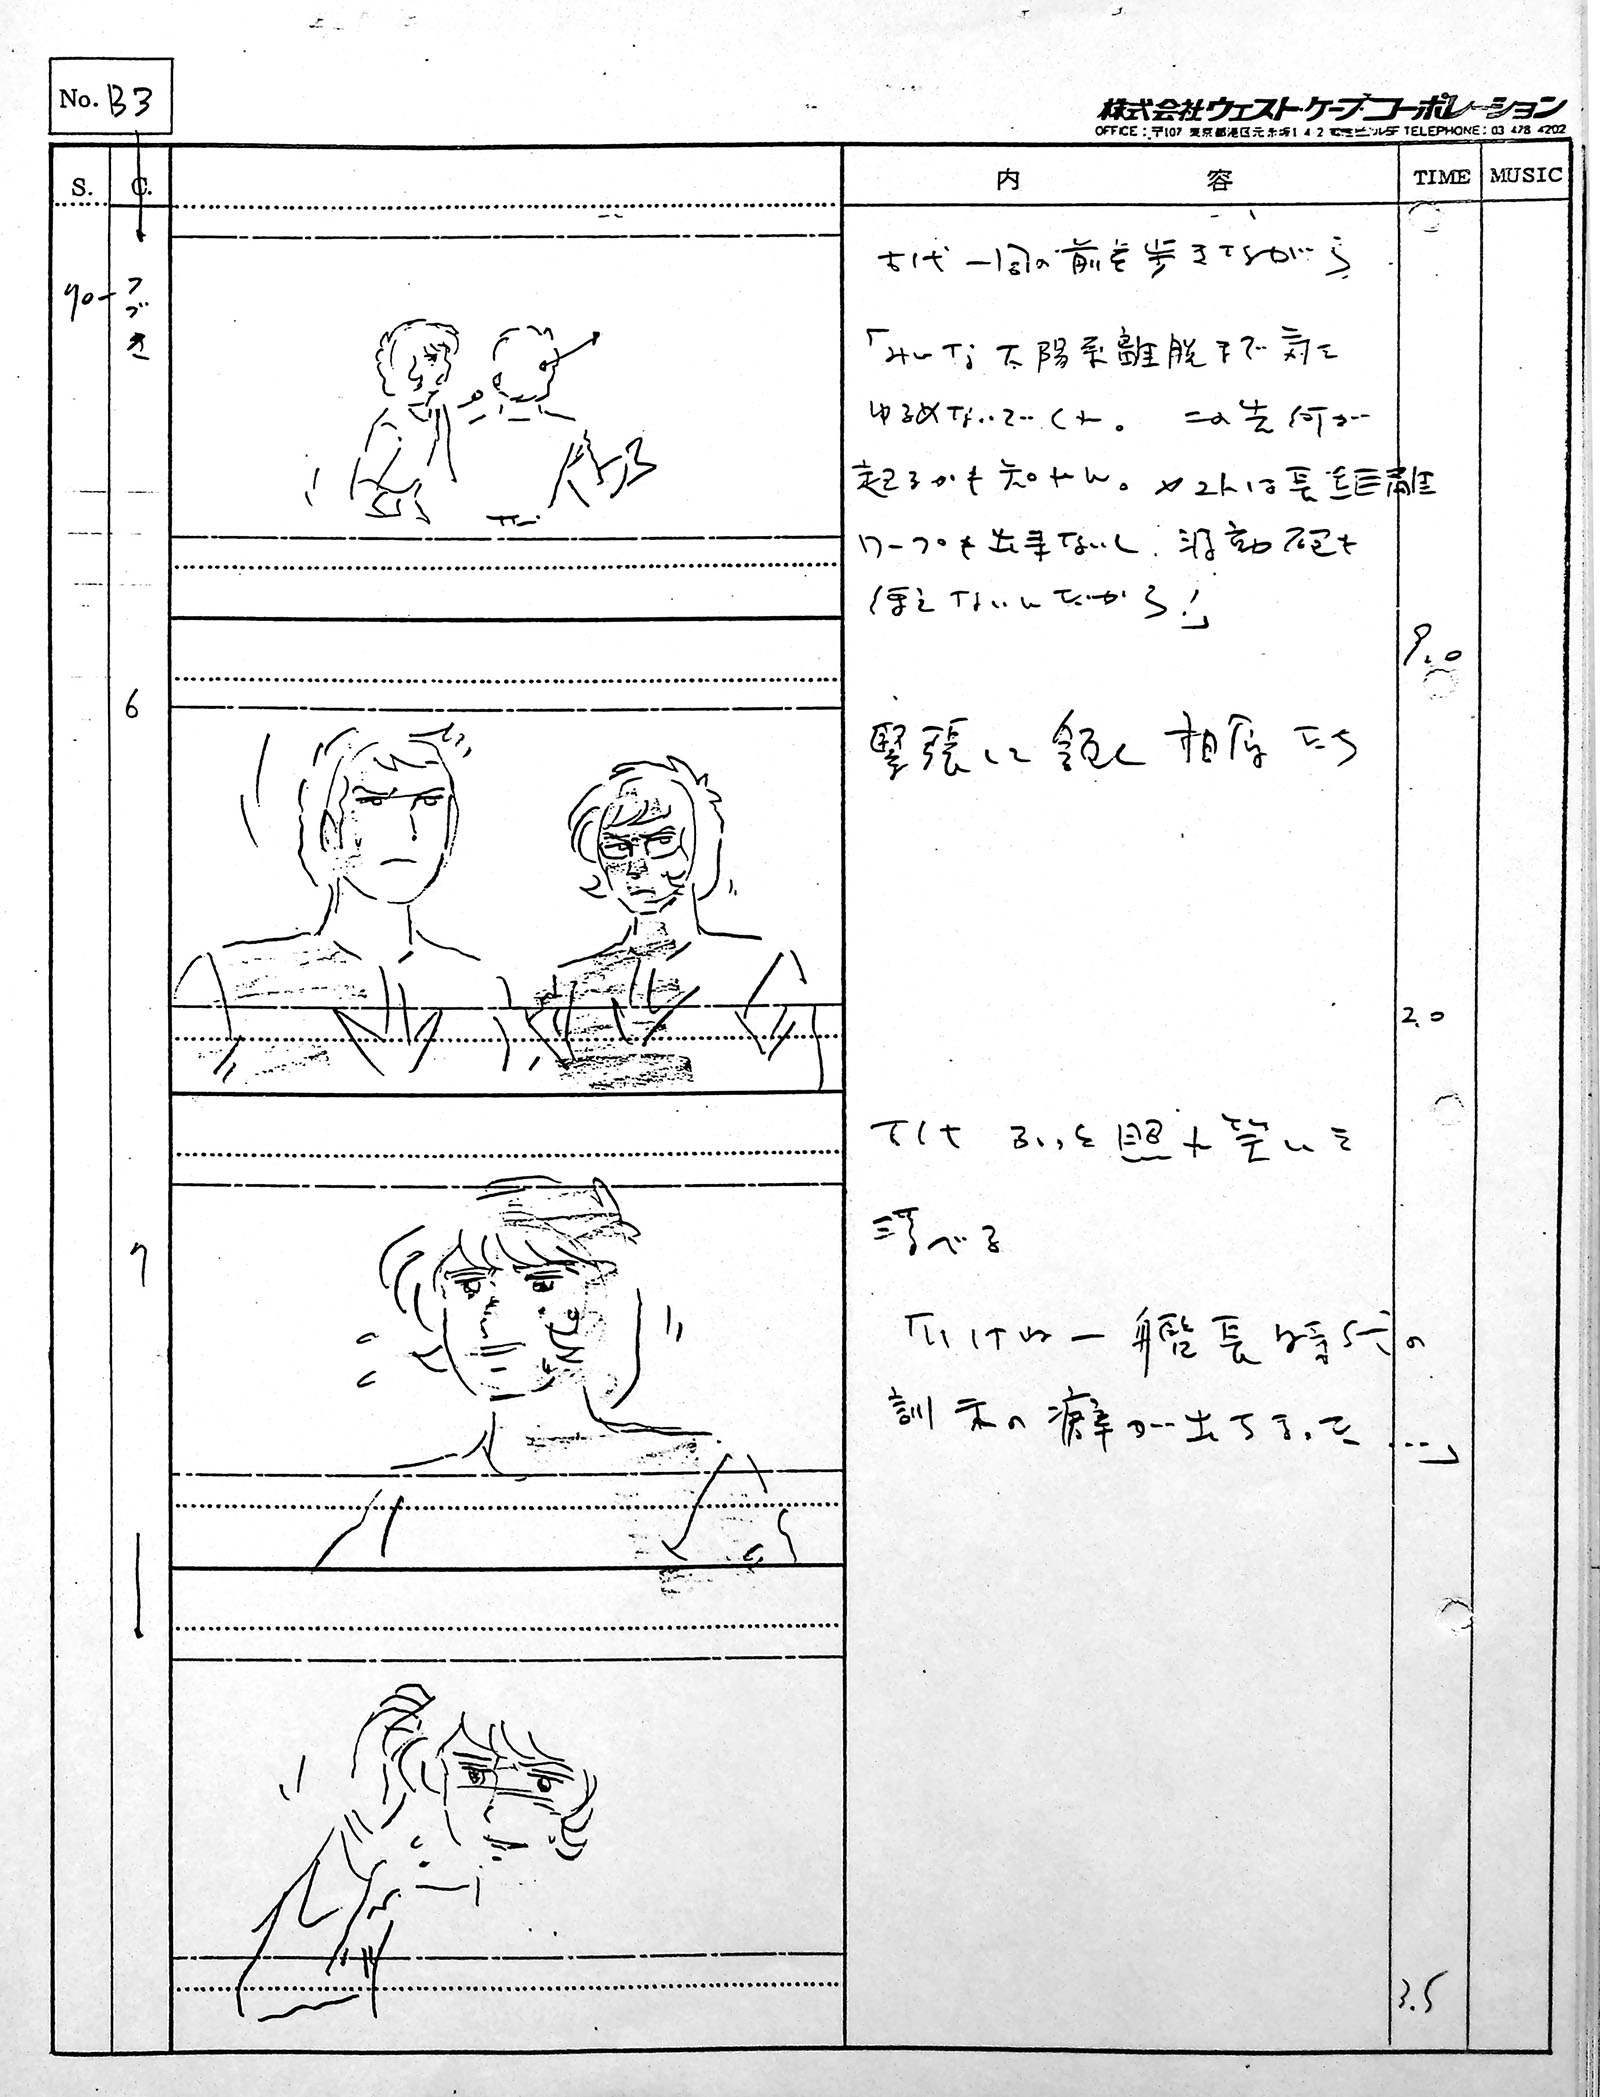 No. B3
株式会社ウェスト・ケープ・コーポレーション
OFFICE：〒107 東京都港区元赤坂1 4 2 TELEPHONE：03 478 4202
S. C. 内容 TIME MUSIC
つづき
古代 一同の前を歩きながら
「みんな 太陽系離脱まで 気を
ゆるめないでくれ。 この先何が
起るかも知れん。ヤマトは長距離
ワープも出来ないし、波動砲も
使えないんだから！」
9.0
6
緊張して 相原たち
2.0
7
古代 ふっと照れ笑いを
浮べる
艦長時代の
訓示の癖が出ちまった…」
3.5